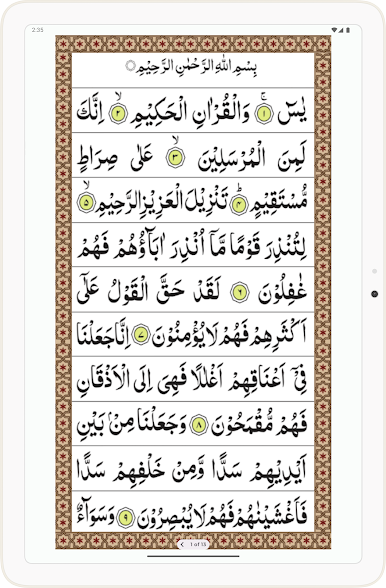 2:35
بِسْمِ اللهِ الرَّحْمٰنِ الرَّحِيْمِ ○
يٰسٓ ۚ﴿۱﴾ وَالْقُرْاٰنِ الْحَكِيْمِ ۙ﴿۲﴾ اِنَّكَ
لَمِنَ الْمُرْسَلِيْنَ ۙ﴿۳﴾ عَلٰى صِرَاطٍ
مُّسْتَقِيْمٍ ؕ﴿۴﴾ تَنْزِيْلَ الْعَزِيْزِ الرَّحِيْمِ ۙ﴿۵﴾
لِتُنْذِرَ قَوْمًا مَّاۤ اُنْذِرَ اٰبَآؤُهُمْ فَهُمْ
غٰفِلُوْنَ ﴿۶﴾ لَقَدْ حَقَّ الْقَوْلُ عَلٰۤى
اَكْثَرِهِمْ فَهُمْ لَا يُؤْمِنُوْنَ ﴿۷﴾ اِنَّا جَعَلْنَا
فِيْۤ اَعْنَاقِهِمْ اَغْلٰلًا فَهِيَ اِلَى الْاَذْقَانِ
فَهُمْ مُّقْمَحُوْنَ ﴿۸﴾ وَجَعَلْنَا مِنْۢ بَيْنِ
اَيْدِيْهِمْ سَدًّا وَّمِنْ خَلْفِهِمْ سَدًّا
فَاَغْشَيْنٰهُمْ فَهُمْ لَا يُبْصِرُوْنَ ﴿۹﴾ وَسَوَآءٌ
1 of 15